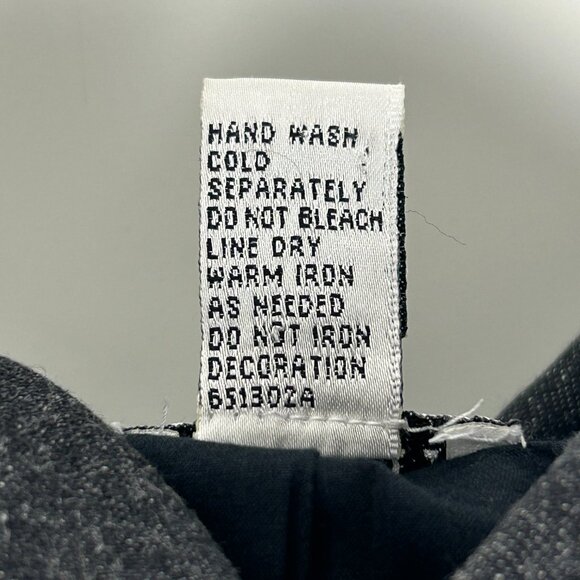 HAND WASH
COLD
SEPARATELY
DO NOT BLEACH
LINE DRY
WARM IRON
AS NEEDED
DO NOT IRON
DECORATION
651302A